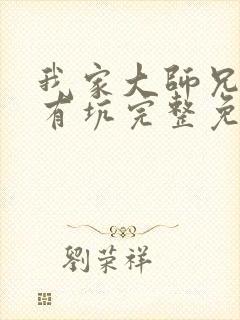 我家大師兄
有坑完整免
劉荣祥